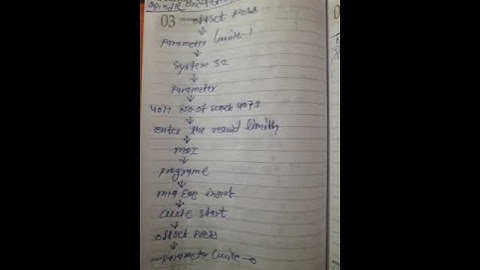 Spindle
03 offset press
↓
Parameter write-1
↓
System 32
↓
Parameter
↓
4077 No of 4073
↓
enter the
↓
MDI
↓
programe
↓
M19 EOB insert
↓
start
↓
offset press
↓
Parameter write-0